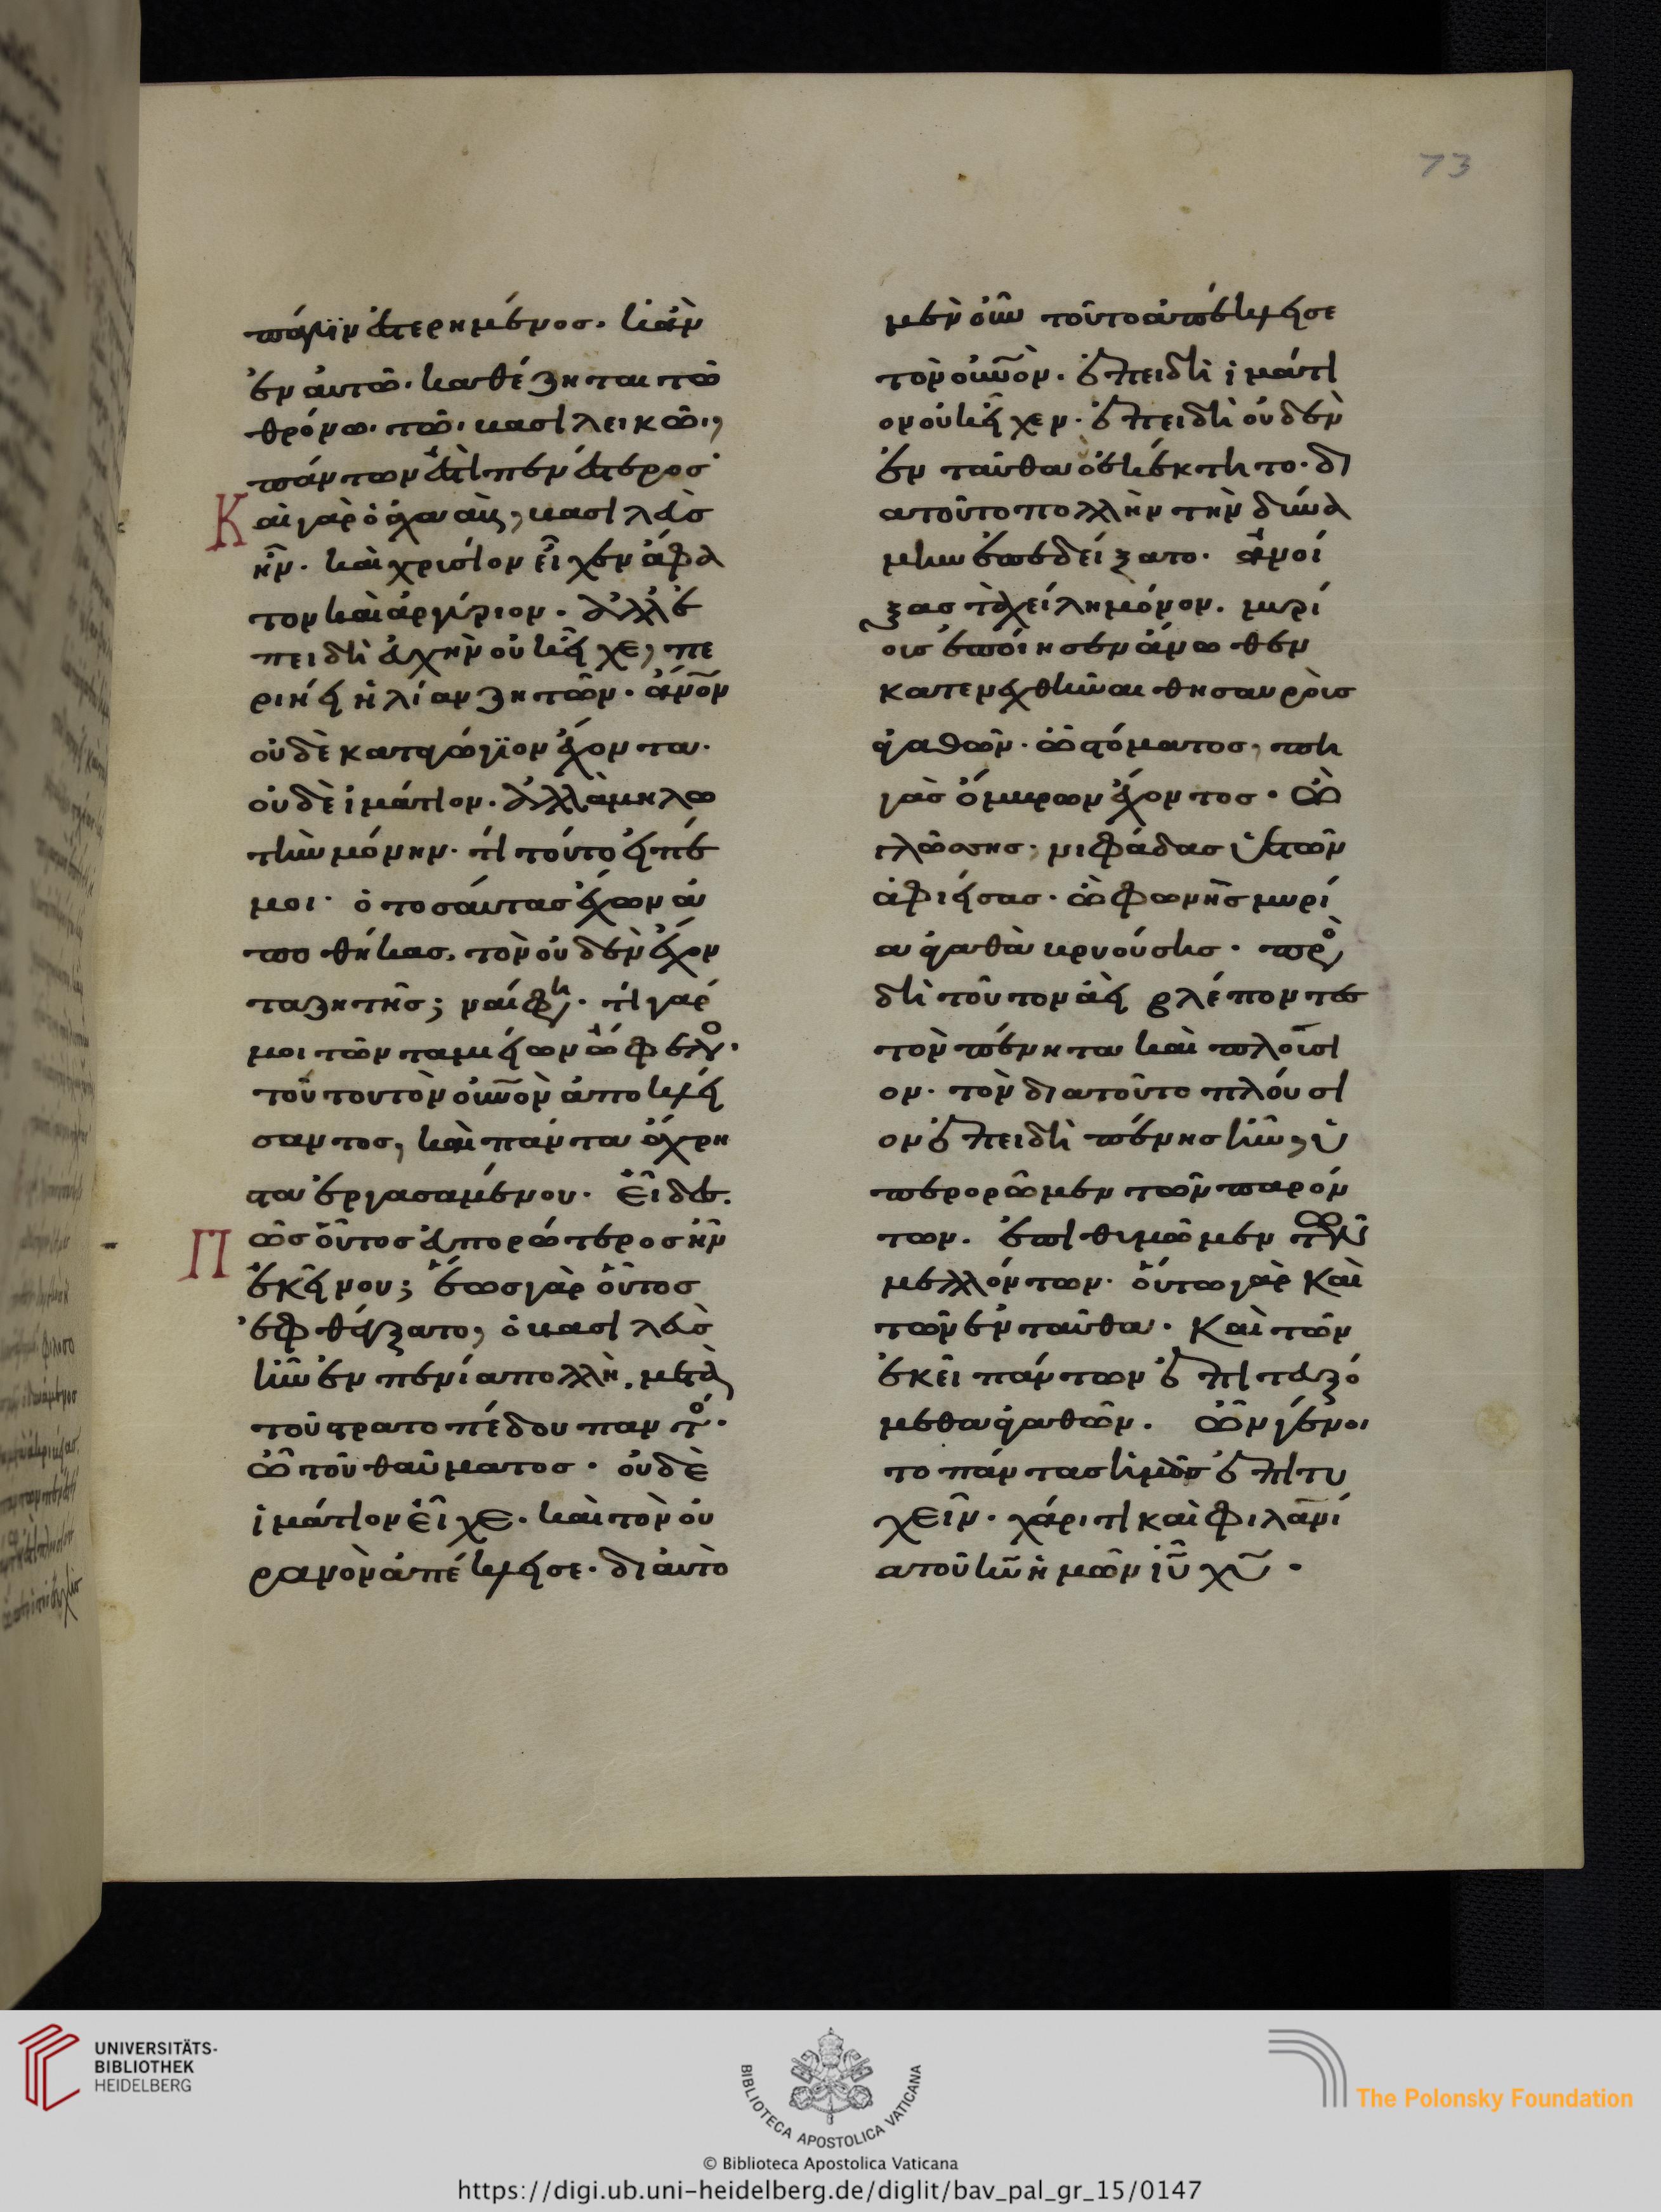 73
πάλιν ἀπερημένος. κἂν
ἐν αὐτῶ. καθέζηται τῶ
θρόνω. τῶ. βασιλεικῶ.,
πάντων ἐστὶ πενέστερος
Καὶ γὰρ ὁ ἀχαὰβ, βασιλεὺς
ἦν. καὶ χρυσίον εἶχεν ἄφα
τον καὶ ἀργύριον. ἀλλ' ἐ
πειδὴ εὐχὴν οὐκ εἶχε, πε
ριήει ἠλίαν ζητῶν. ἄνον
οὐδὲ καταγώγϊον ἔχοντα.
οὐδὲ ἱμάτιον. ἀλλὰ μηλω
τὴν μόνην. τί τοῦτο εἰπέ
μοι. ὁ τοσαύτας ἔχων ἀ
ποθήκας, τὸν οὐδὲν ἔχον
τα ζητῆς; ναί φη. τί γάρ
μοι τῶν ταμιείων ὄφελο.
τούτου τὸν οὐνὸν ἀποκλεί
σαντος, καὶ πάντα ἄχρη
στα ἐργασαμένου. εἶδες.
Πῶς οὗτος εὐπορώτερος ἦν
ἐκείνου; ἕως γὰρ οὗτος
ἐφθέγξατο, ὁ βασιλεὺς
ἦν ἐν πενία πολλῆ, μετὰ
τοῦ στρατοπέδου παντο.
ὢ τοῦ θαύματος. οὐδὲ
ἱμάτιον εἶχε. καὶ τὸν οὐ
ρανὸν ἀπέκλεισε. δι αὐτὸ
μὲν οὖν τοῦτο ἀπέκλεισε
τὸν οὐνὸν. ἐπειδὴ ἱμάτι
ον οὐκ εἶχεν. ἐπειδὴ οὐδὲν
ἐνταῦθα ἐκέκτητο. δι
α τοῦτο πολλὴν τὴν δύνα
μιν ἐπεδείξατο. ἀνοί
ξας τὰ χείλη μόνον. μυρί
ους ἐποίησεν ἄνωθεν
κατενεχθῆναι θησαυροὺς
ἀγαθῶν. ὢ στόματος, πη
γὰς ὄμβρων ἔχοντος. ὢ
γλώσσης, νιφάδας ὑετῶν
ἀφιείσας. ὢ φωνῆς μυρί
α ἀγαθὰ βρυούσης. προς
δὴ τοῦτον ἀεὶ βλέποντες
τὸν πένητα καὶ πλούσι
ον. τὸν διατοῦτο πλούσι
ον ἐπειδὴ πένης ἦν, ὑ
περορῶμεν τῶν παρόν
των. ἐπιθυμῶμεν τῶν
μελλόντων. οὕτω γὰρ καὶ
τῶν ἐνταῦθα. καὶ τῶν
ἐκεῖ πάντων ἐπιτευξό
μεθα ἀγαθῶν. ὧν γένοι
το πάντας ἡμᾶς ἐπιτυ
χεῖν. χάριτι καὶ φιλανί
α τοῦ κῦ ἡμῶν ἰῦ χῦ.
UNIVERSITÄTS-
BIBLIOTHEK
HEIDELBERG
BIBLIOTECA APOSTOLICA VATICANA
The Polonsky Foundation
© Biblioteca Apostolica Vaticana
https://digi.ub.uni-heidelberg.de/diglit/bav_pal_gr_15/0147